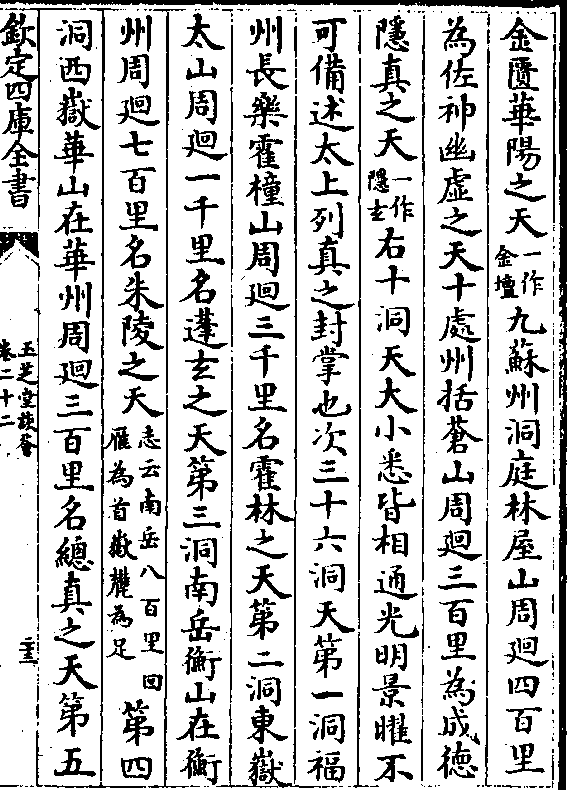 金匱華陽之天一作金壇九蘇州洞庭林屋山周廻四百里
為佐神幽虚之天十處州括蒼山周廻三百里為成德
隱真之天一作隱玄右十洞天大小悉皆相通光明景曜不
可備述太上列真之封掌也次三十六洞天第一洞福
州長樂霍橦山周廻三千里名霍林之天第二洞東嶽
太山周廻一千里名蓬玄之天第三洞南岳衡山在衡
州周廻七百里名朱陵之天志云南岳八百里回雁為首嶽麓為足第四
洞西嶽華山在華州周廻三百里名總真之天第五
欽定四庫全書
玉芝堂談薈
卷二十二